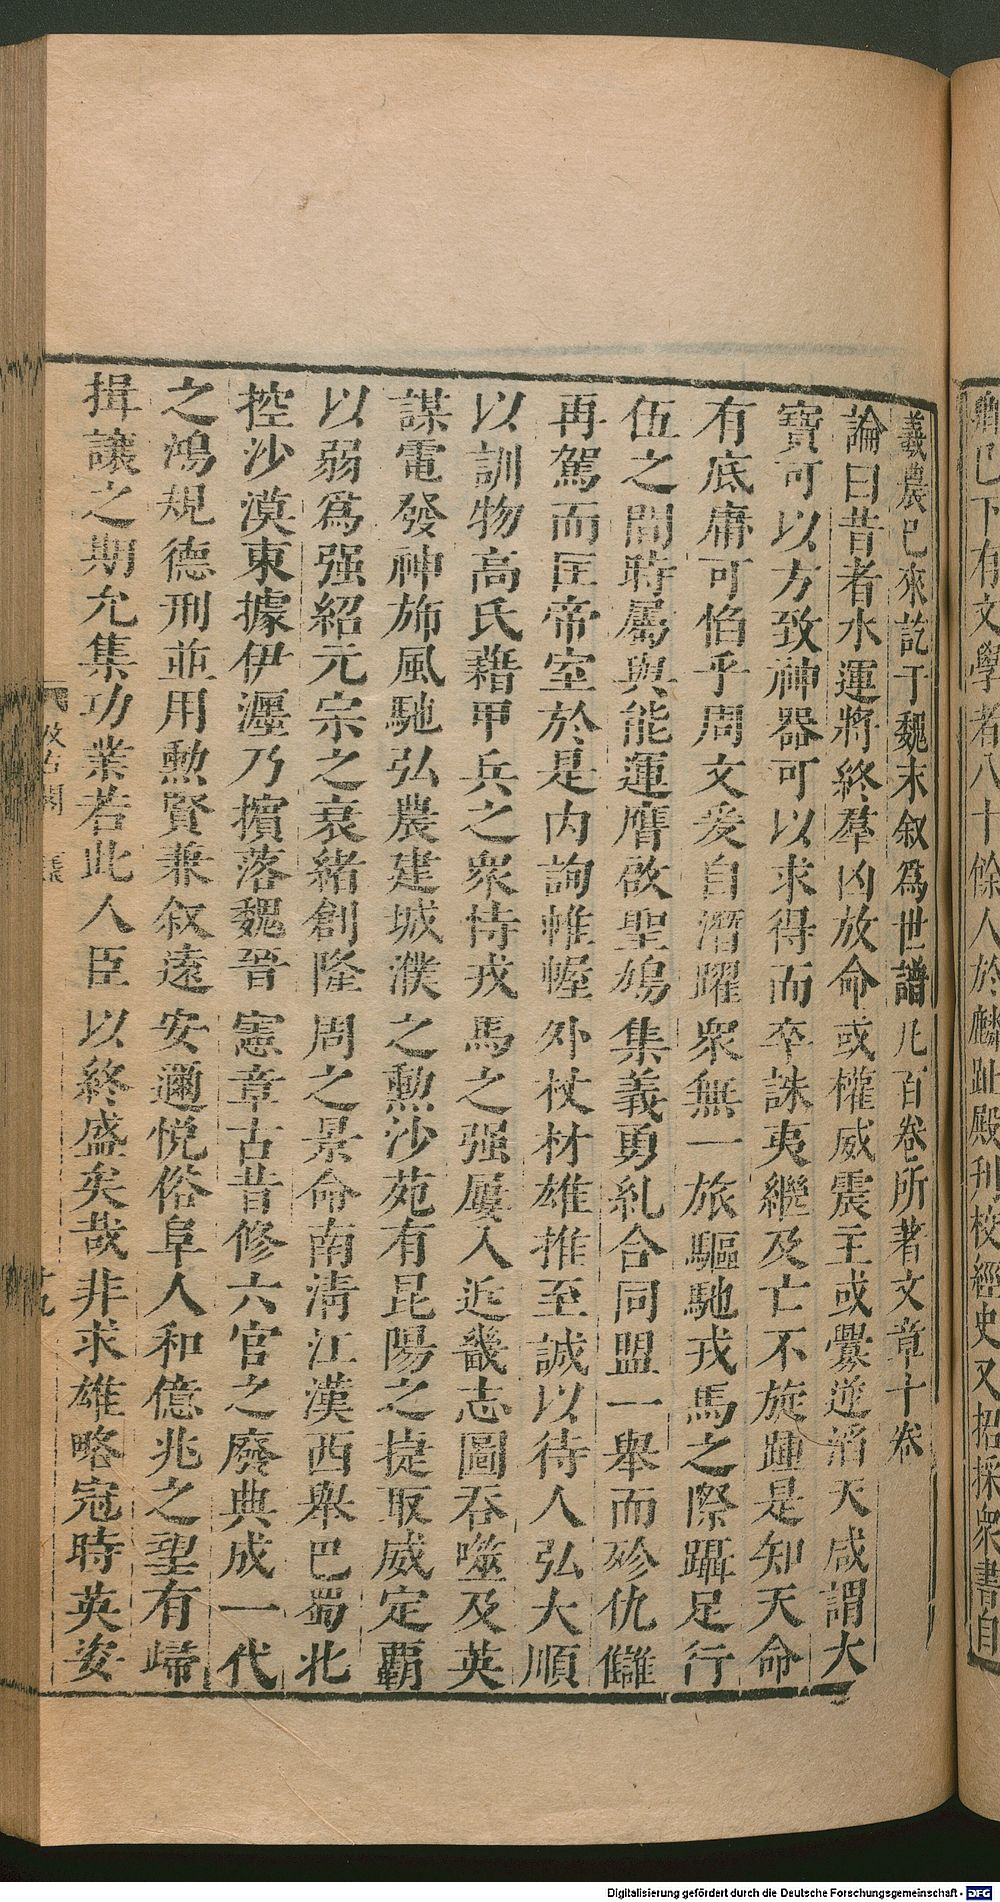 齊已下有文學者八十餘人於麟趾殿刊校經史又招採衆書自
羲農已來訖于魏末叙爲世譜凡百卷所著文章十卷
論曰昔者水運將終羣凶放命或權威震主或釁逆滔天咸謂大
寶可以方致神器可以求得而卒誅夷繼及亡不旋踵是知天命
有底庸可慆乎周文爰自潛躍衆無一旅驅馳戎馬之際躡足行
伍之間時屬與能運膺啟聖鳩集義勇糺合同盟一舉而殄仇讎
再駕而匡帝室於是内詢帷幄外杖材雄推至誠以待人弘大順
以訓物高氏藉甲兵之衆恃戎馬之强屢入近畿志圖吞噬及英
謀電發神斾風馳弘農建城濮之勲沙苑有昆陽之捷取威定覇
以弱爲强紹元宗之衰緒創隆周之景命南淸江漢西舉巴蜀北
控沙漠東據伊瀍乃擯落魏晉憲章古昔修六官之廢典成一代
之鴻規德刑並用勲賢兼叙遠安邇悦俗阜人和億兆之望有歸
揖讓之期允集功業若此人臣以終盛矣哉非求雄略冠時英姿
汲古閣